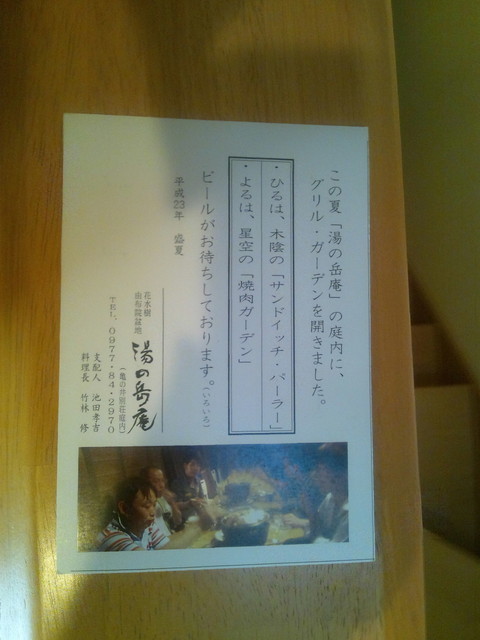 この夏「湯の岳庵」の庭内に、
グリル・ガーデンを開きました。
・ひるは、木陰の「サンドイッチ・パーラー」
・よるは、星空の「焼肉ガーデン」
ビールがお待ちしております。(いろいろ)
平成23年 盛夏
花水樹
由布院盆地
湯の岳庵
(亀の井別荘庭内)
TEL. 0977・84・2970
支配人 池田孝吉
料理長 竹林 修